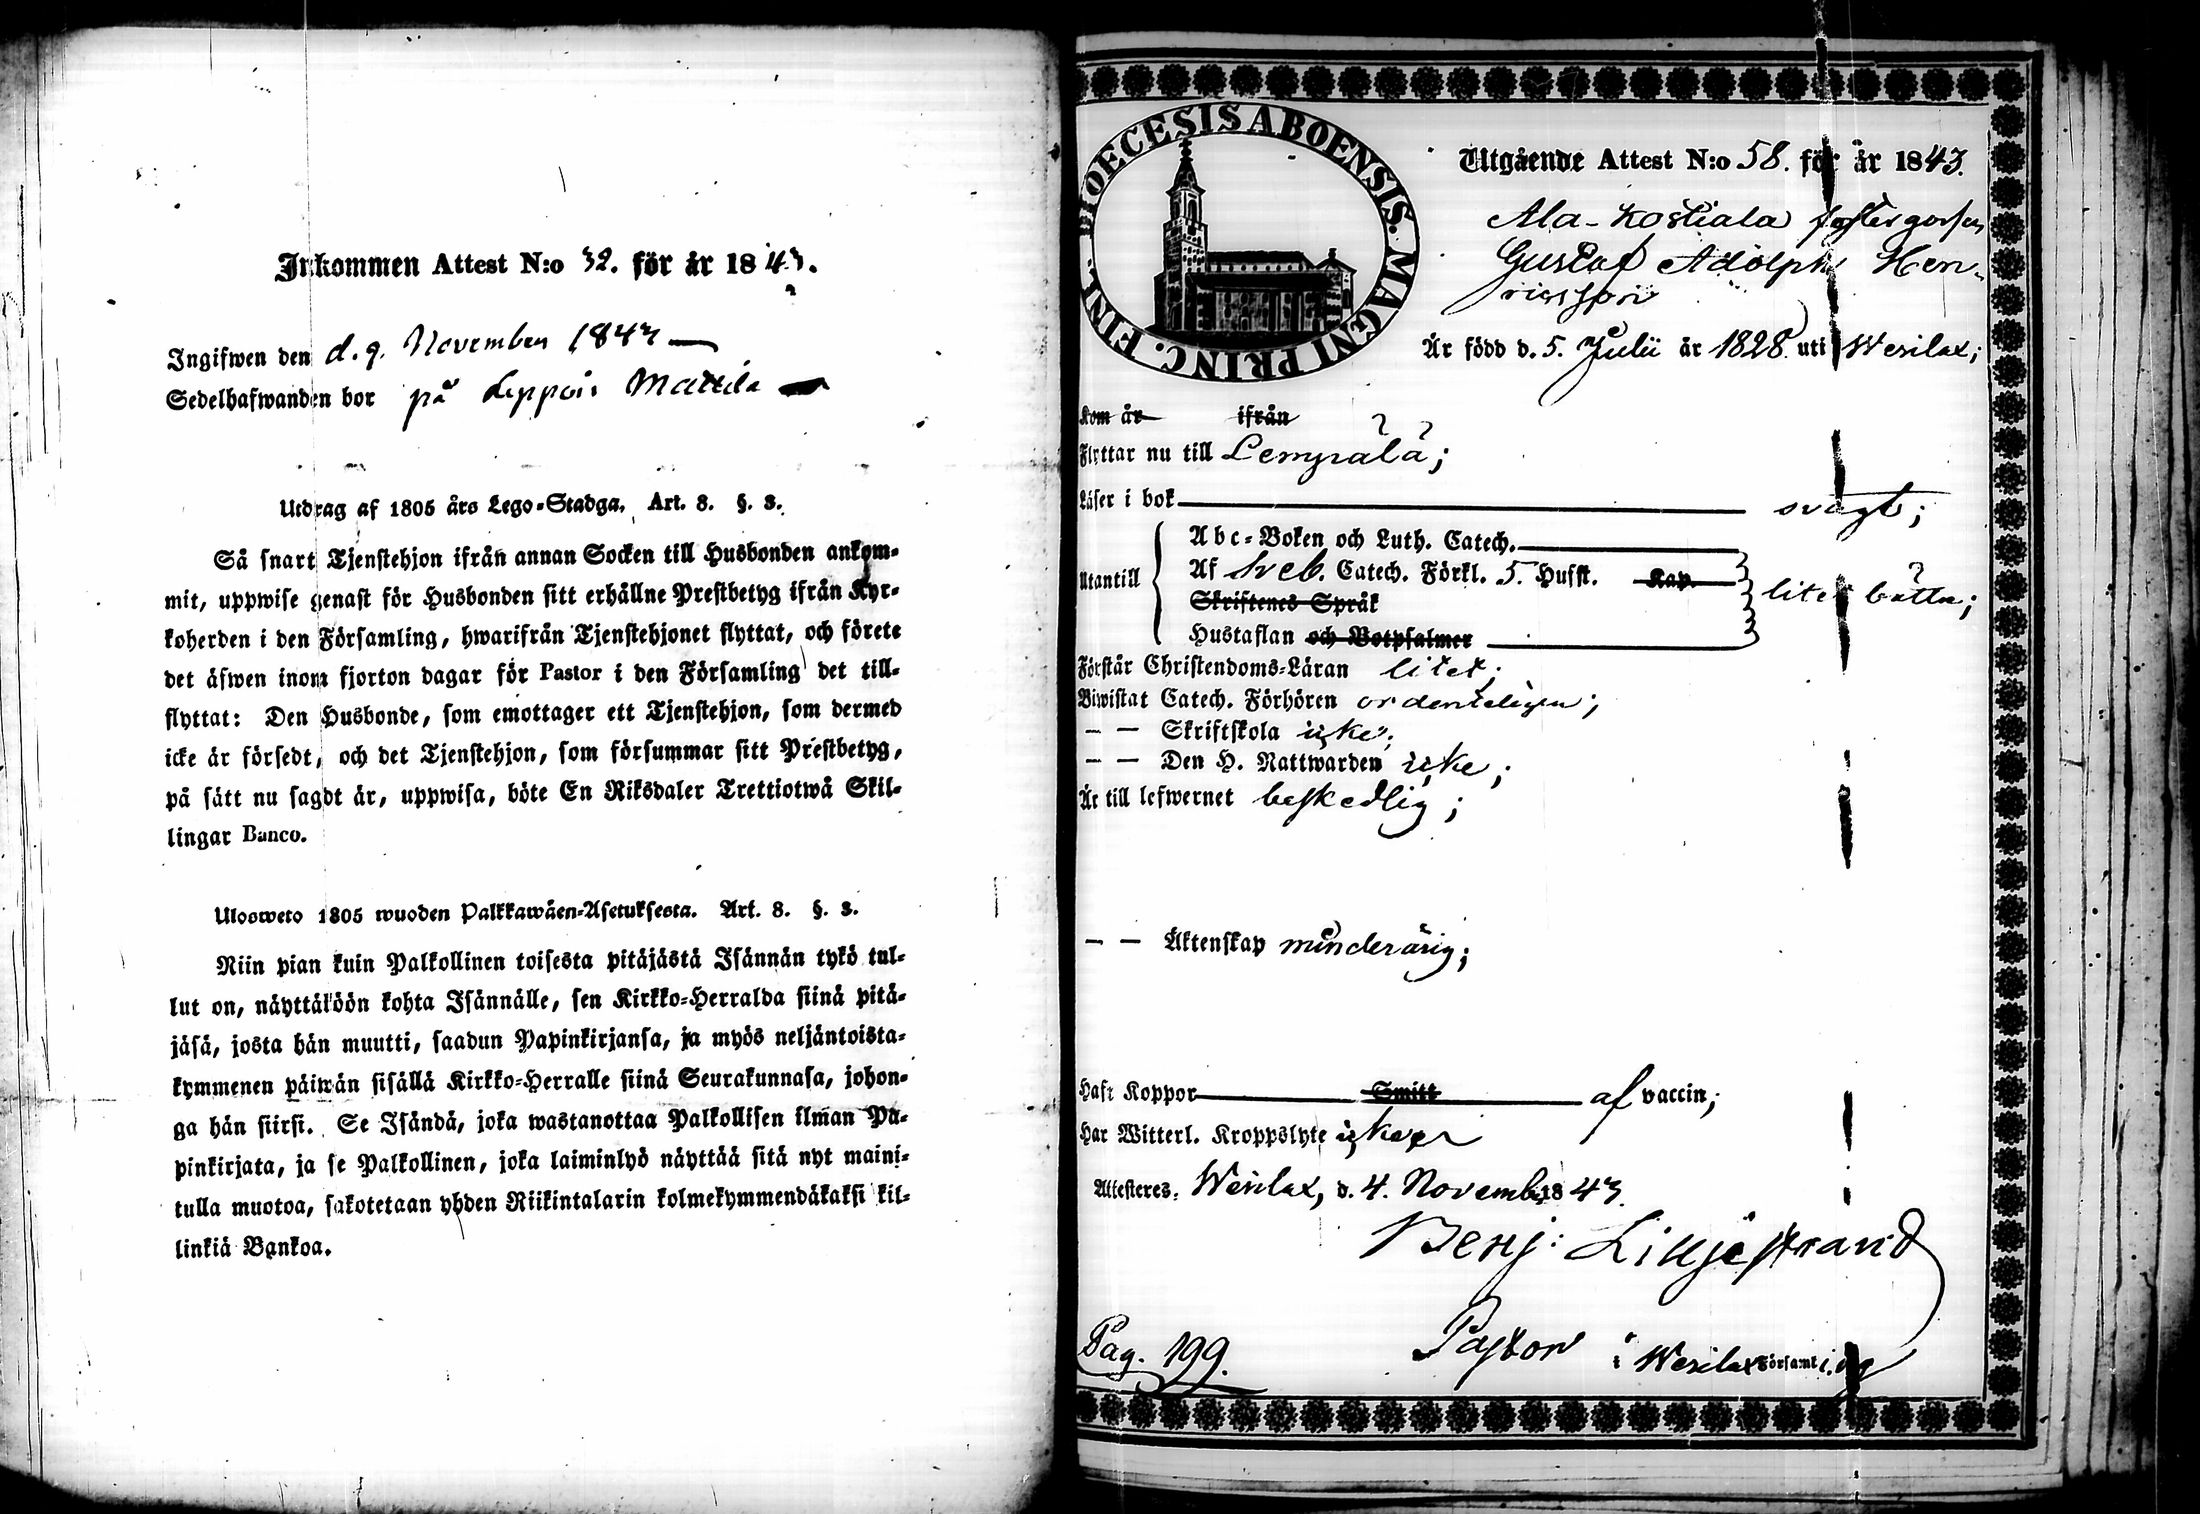 Inkommen Attest N:o 32. för år 1843.
Ingifwen den d. 9. November 1843
Sedelhafwanden bor på Leppois Mattila
Utdrag af 1805 års Lego-Stadga. Art. 8. §. 3.
Så snart Tjenstehjon ifrån annan Socken till Husbonden ankom-
mit, uppwise genast för Husbonden sitt erhållne Prestbetyg ifrån Kyr-
koherden i den Församling, hwarifrån Tjenstehjonet flyttat, och förete
det äfwen inom fjorton dagar för Pastor i den Församling det till-
flyttat: Den Husbonde, som emottager ett Tjenstehjon, som dermed
icke är försedt, och det Tjenstehjon, som försummar sitt Prestbetyg,
på sätt nu sagdt är, uppwisa, böte En Riksdaler Trettiotwå Skil-
lingar Banco.
Ulosweto 1805 wuoden Palkkawäen-Asetuksesta. Art. 8. §. 3.
Niin pian kuin Palkollinen toisesta pitäjästä Isännän tykö tul-
lut on, näyttäköön kohta Isännälle, sen Kirkko-Herralda siinä pitä-
jäsä, josta hän muutti, saadun Papinkirjansa, ja myös neljäntoista-
kymmenen päiwän sisällä Kirkko-Herralle siinä Seurakunnasa, johon-
ga hän siirsi. Se Isändä, joka wastanottaa Palkollisen ilman Pa-
pinkirjata, ja se Palkollinen, joka laiminlyö näyttää sitä nyt maini-
tulla muotoa, sakotetaan yhden Riikintalarin kolmekymmendäkaksi kil-
linkiä Bankoa.
DIOECESIS ABOENSIS. MAGNI PRINC. FINL.
Utgående Attest N:o 58. för år 1843.
Ala-Kostiala fostergossen
Gustaf Adolph Hen-
ricsson
Är född d. 5. Julii år 1828 uti Wesilax;
Kom år ifrån
Flyttar nu till Lempälä;
Läser i bok svagt;
Abc-Boken och Luth. Catech.
Utantill Af Sveb. Catech. Förkl. 5. Husst. Kap. litet bättre;
Skriftenes Språk
Hustaflan och Botpsalmer
Förstår Christendoms-Läran litet;
Biwistat Catech. Förhören ordenteligen;
— — Skriftskola icke;
— — Den H. Nattwarden icke;
Är till lefwernet beskedlig;
— — Äktenskap minderårig;
Haft Koppor Smitt af vaccin;
Har Witterl. Kroppslyte icke
Attesteres. Wesilax, d. 4. Novemb. 1843.
Benj: Liljestrand
Pastor i Wesilax Församling
Pag. 199.